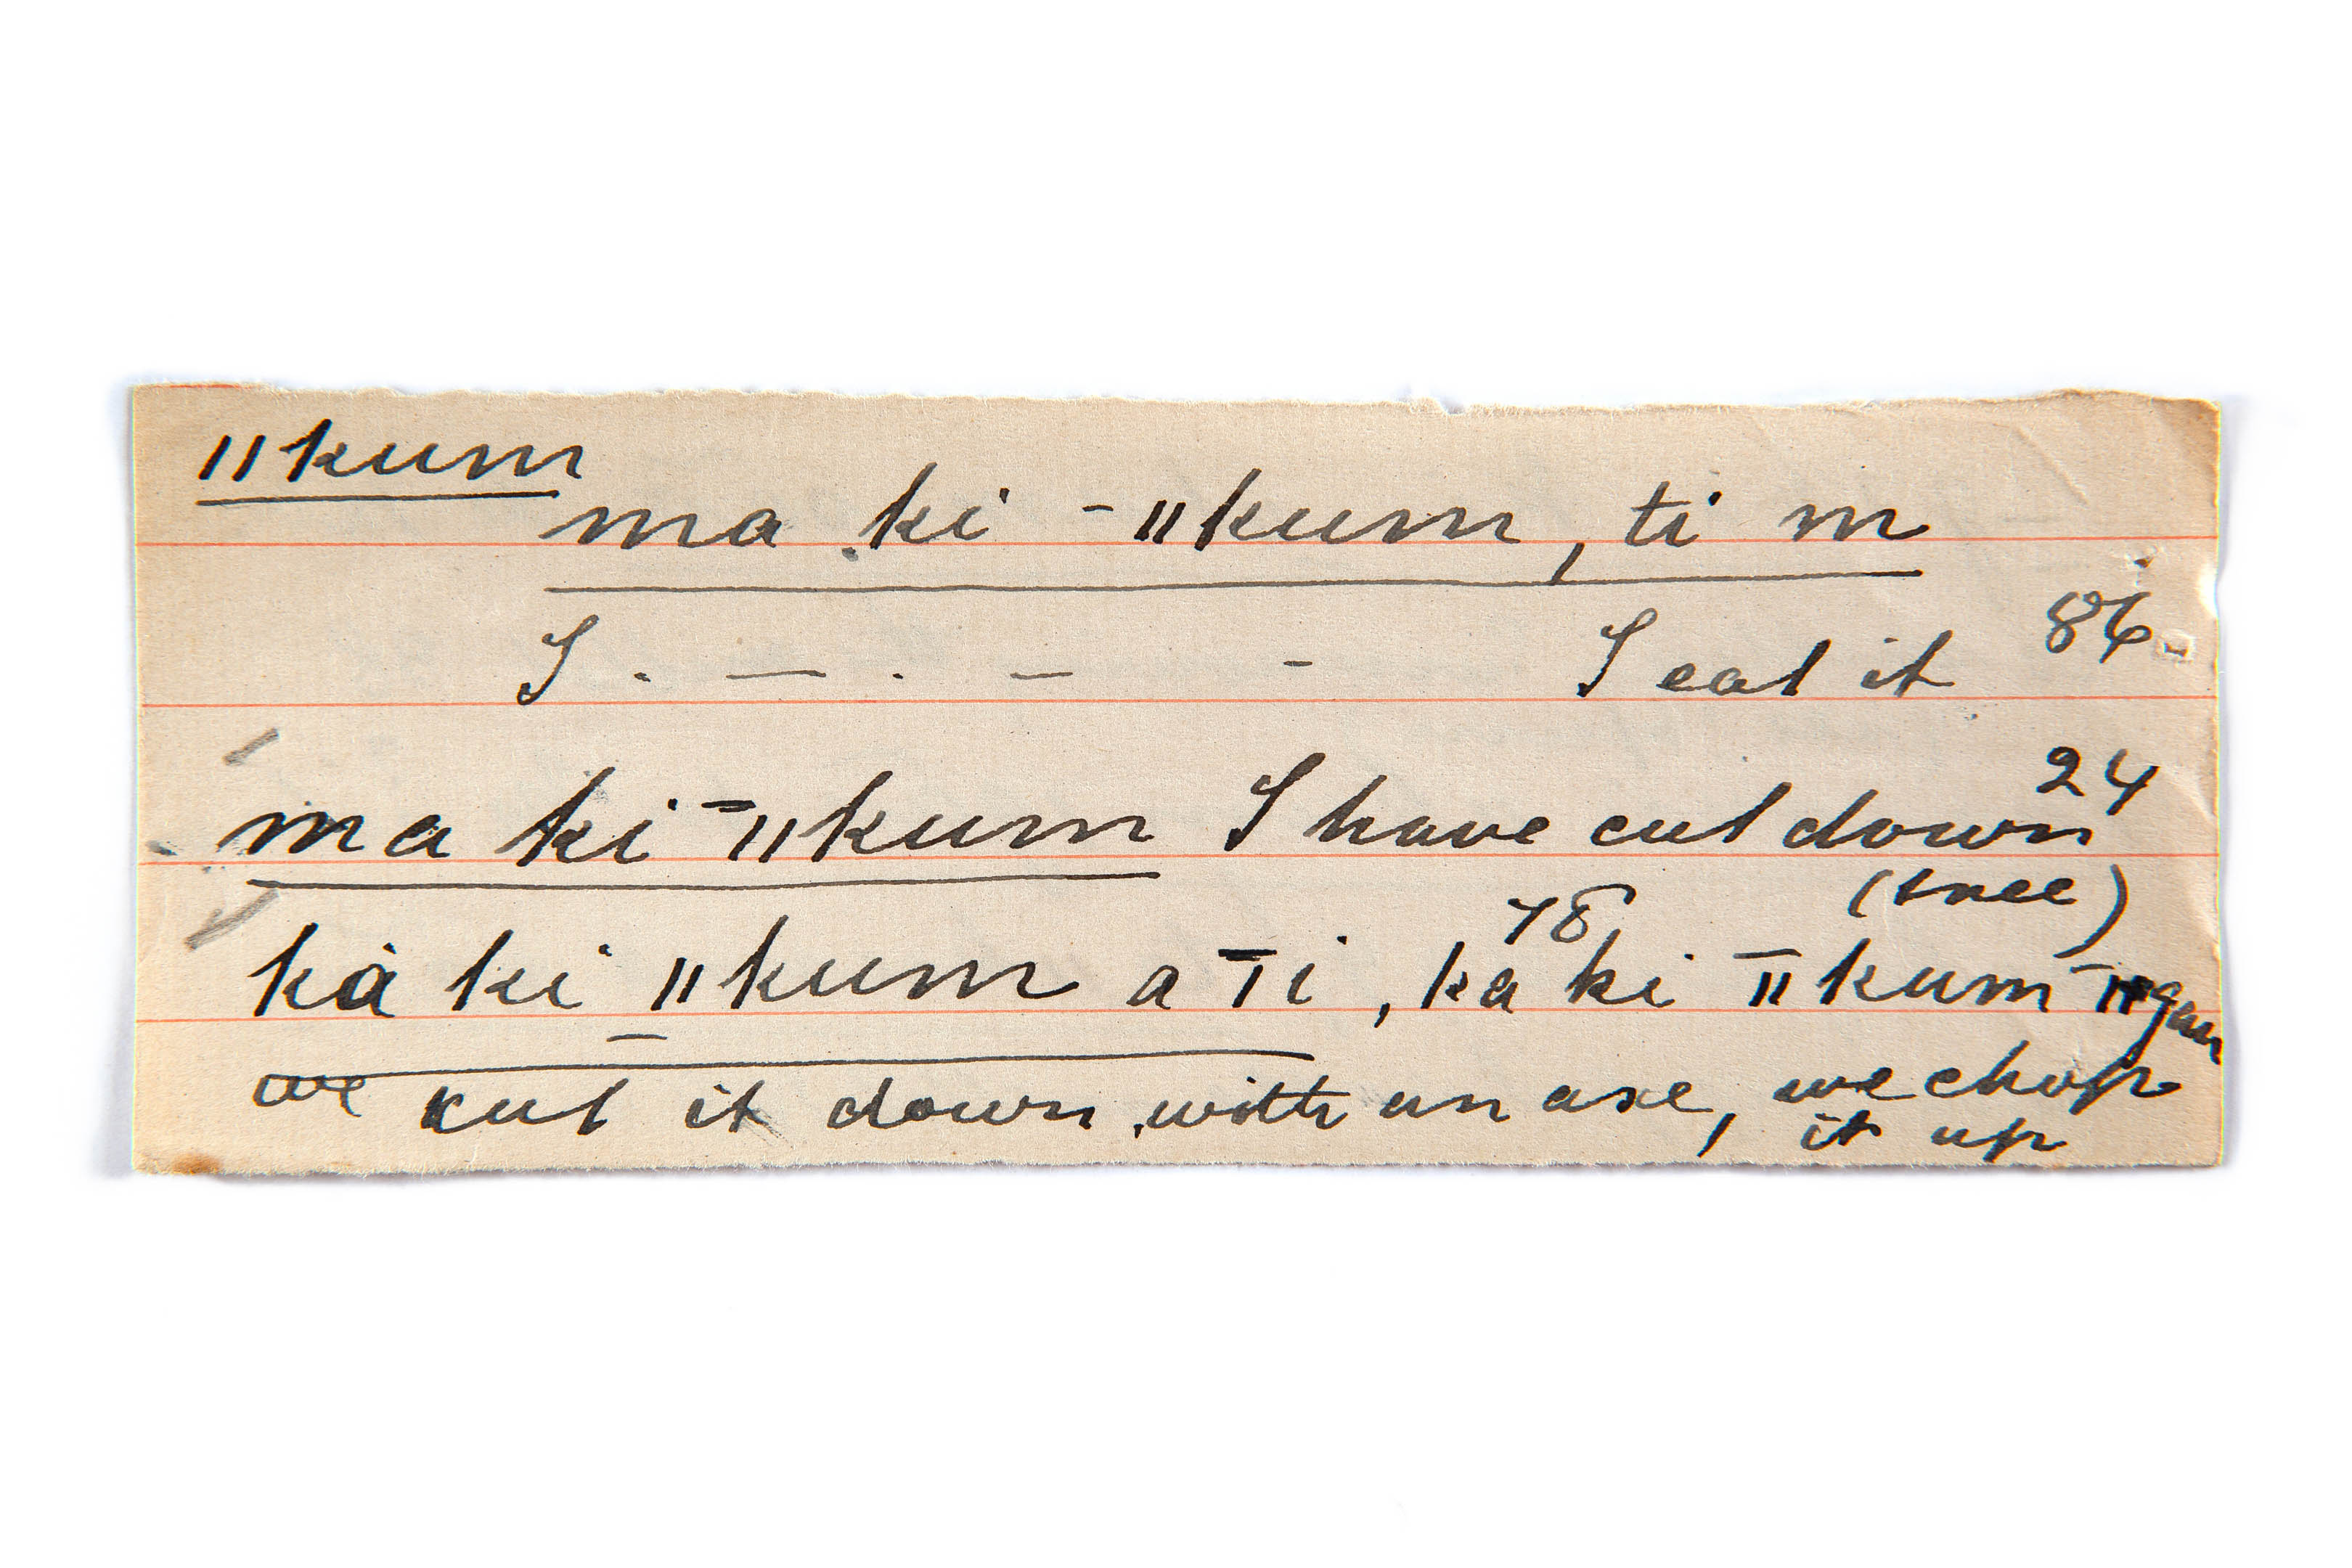 ǁkum
ma ki -ǁkum, ti m
I . — . — - I eat it 86
ma ki ¯ǁkum I have cut down 24
(tree)
78
ka ki ǁkum a ¯ǀi, ka ki ¯ǁkum ¯ǁgau
we cut it down with an axe, we chop
it up